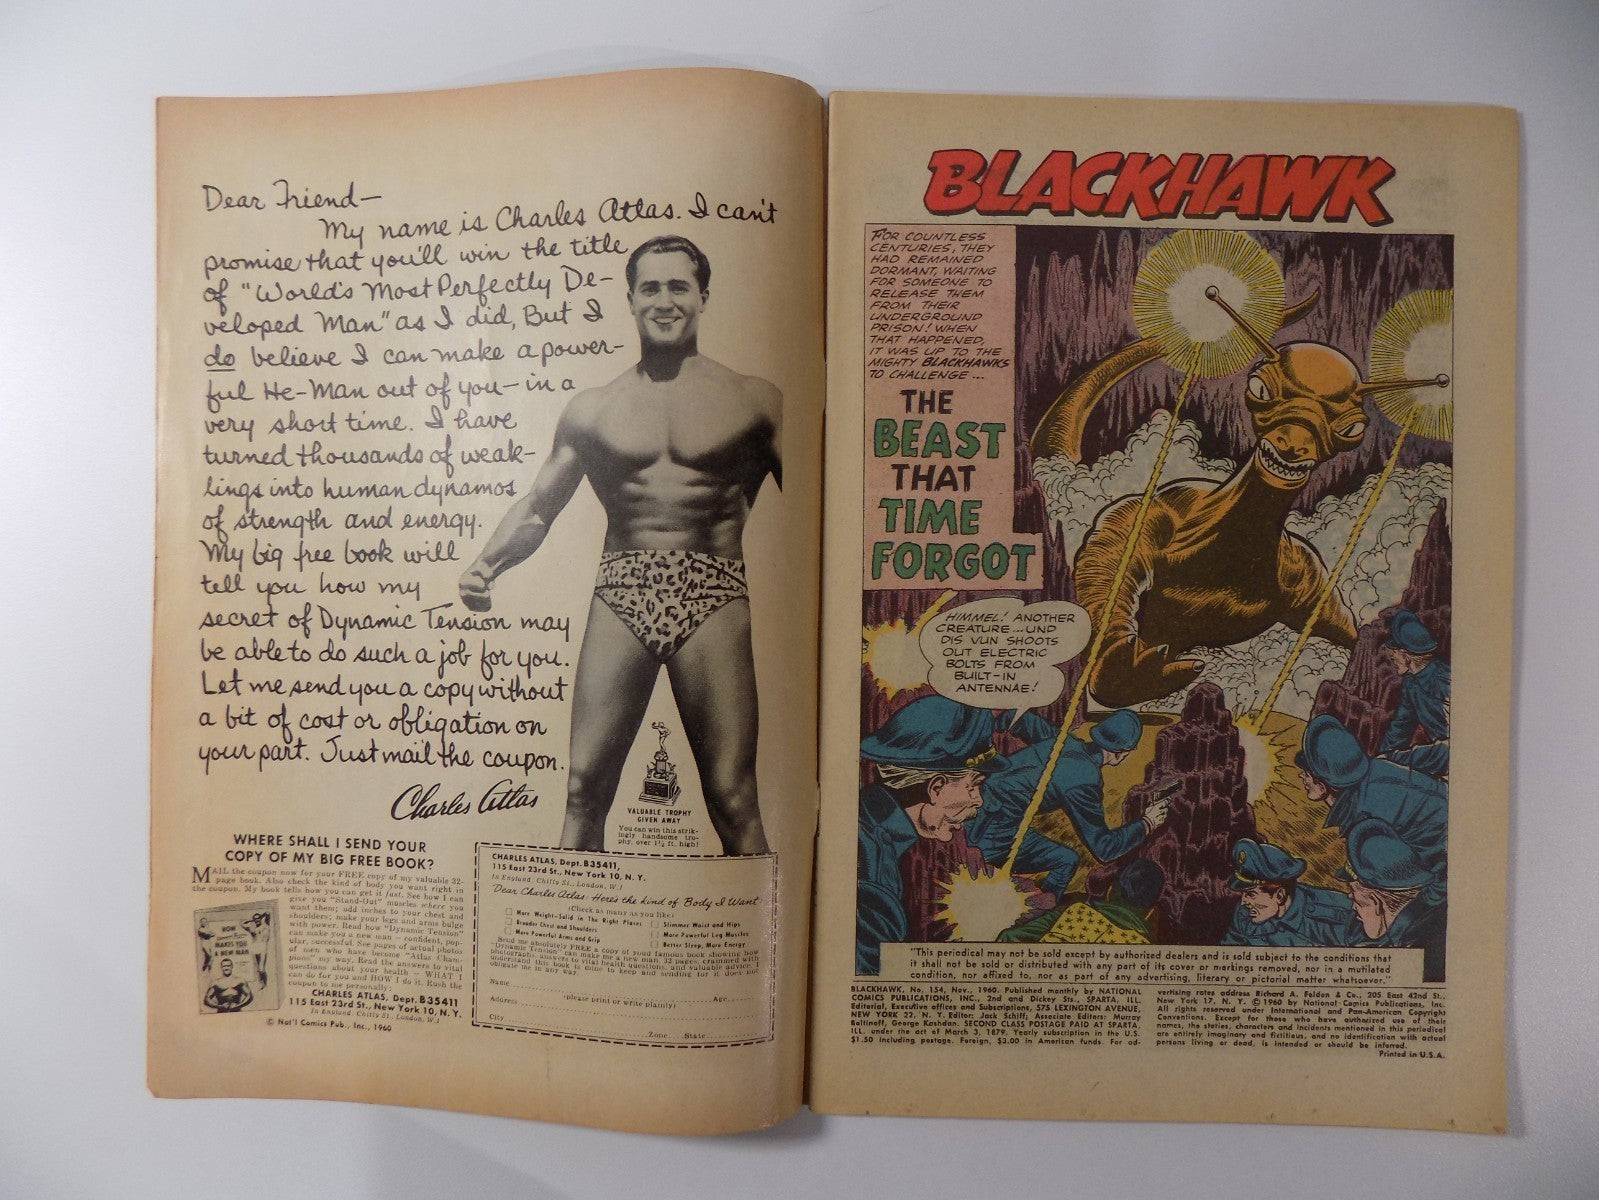 Dear Friend—
My name is Charles Atlas. I can't
promise that you'll win the title
of "World's Most Perfectly De-
veloped Man" as I did, But I
do believe I can make a power-
ful He-Man out of you—in a
very short time. I have
turned thousands of weak-
lings into human dynamos
of strength and energy.
My big free book will
tell you how my
secret of Dynamic Tension may
be able to do such a job for you.
Let me send you a copy without
a bit of cost or obligation on
your part. Just mail the coupon.
Charles Atlas
VALUABLE TROPHY
GIVEN AWAY
You can win this strik-
ingly handsome tro-
phy, over 1½ ft. high!
WHERE SHALL I SEND YOUR
COPY OF MY BIG FREE BOOK?
MAIL the coupon now for your FREE copy of my valuable 32-
page book. Also check the kind of body you want right in
the coupon. My book tells how you can get it fast. See how I can
give you "Stand-Out" muscles where you
want them; add inches to your chest and
shoulders; make your legs and arms bulge
with power. Read how "Dynamic Tension"
can make you a new man – confident, pop-
ular, successful. See pages of actual photos
of men who have become "Atlas Cham-
pions" my way. Read the answers to vital
questions about your health – WHAT I
can do for you and HOW I do it. Rush the
coupon to me personally:
CHARLES ATLAS, Dept. B35411
115 East 23rd St., New York 10, N. Y.
In England: Chitty St., London, W.1
HOW
MAKES YOU
A NEW MAN
© Nat'l Comics Pub., Inc., 1960
CHARLES ATLAS, Dept. B35411,
115 East 23rd St., New York 10, N. Y.
In England: Chitty St., London, W.1
Dear Charles Atlas: Here's the kind of Body I Want:
(Check as many as you like)
More Weight–Solid in The Right Places
Broader Chest and Shoulders
More Powerful Arms and Grip
Slimmer Waist and Hips
More Powerful Leg Muscles
Better Sleep, More Energy
Send me absolutely FREE a copy of your famous book showing how
"Dynamic Tension" can make me a new man. 32 pages, crammed with
photographs, answers to vital health questions, and valuable advice. I
understand this book is mine to keep and sending for it does not
obligate me in any way.
Name
Age
(please print or write plainly)
Address
City
Zone State
BLACKHAWK
FOR COUNTLESS
CENTURIES, THEY
HAD REMAINED
DORMANT, WAITING
FOR SOMEONE TO
RELEASE THEM
FROM THEIR
UNDERGROUND
PRISON! WHEN
THAT HAPPENED,
IT WAS UP TO THE
MIGHTY BLACKHAWKS
TO CHALLENGE ...
THE
BEAST
THAT
TIME
FORGOT
HIMMEL! ANOTHER
CREATURE...UND
DIS VUN SHOOTS
OUT ELECTRIC
BOLTS FROM
BUILT-IN
ANTENNAE!
"This periodical may not be sold except by authorized dealers and is sold subject to the conditions that
it shall not be sold or distributed with any part of its cover or markings removed, nor in a mutilated
condition, nor affixed to, nor as part of any advertising, literary or pictorial matter whatsoever."
BLACKHAWK, No. 154, Nov., 1960. Published monthly by NATIONAL
COMICS PUBLICATIONS, INC., 2nd and Dickey Sts., SPARTA, ILL.
Editorial, Executive offices and Subscriptions, 575 LEXINGTON AVENUE,
NEW YORK 22, N. Y. Editor: Jack Schiff; Associate Editors: Murray
Boltinoff, George Kashdan. SECOND CLASS POSTAGE PAID AT SPARTA,
ILL. under the act of March 3, 1879. Yearly subscription in the U.S.
$1.50 including postage. Foreign, $3.00 in American funds. For ad-
vertising rates address Richard A. Feldon & Co., 205 East 42nd St.,
New York 17, N. Y. © 1960 by National Comics Publications, Inc.
All rights reserved under International and Pan-American Copyright
Conventions. Except for those who have authorized use of their
names, the stories, characters and incidents mentioned in this periodical
are entirely imaginary and fictitious, and no identification with actual
persons living or dead, is intended or should be inferred.
Printed in U.S.A.